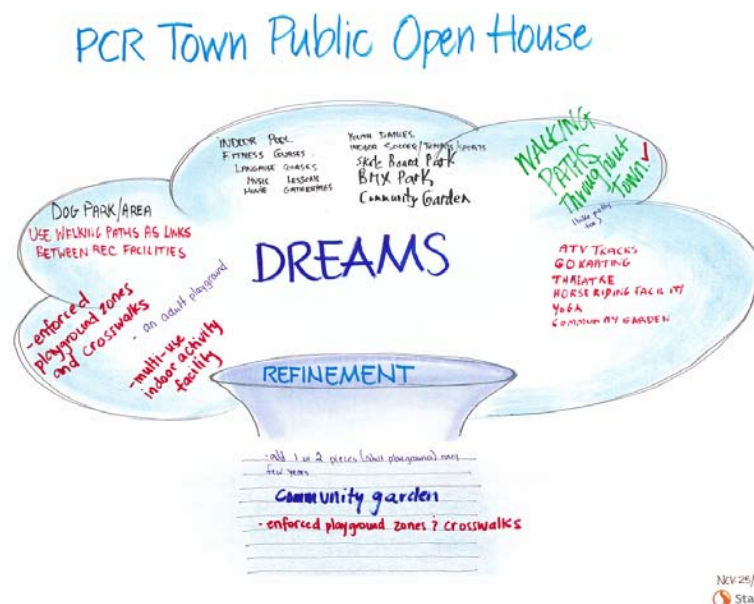 PCR Town Public Open House
INDOOR POOL
FITNESS COURSES
LANGUAGE COURSES
MUSIC LESSONS
MOVIE GATHERINGS
YOUTH
INDOOR SOCCER/TENNIS/SPORTS
Skate Board Park
BMX Park
Community Garden
WALKING
PATHS
Throughout
Town
DOG PARK/AREA
USE WALKING PATHS AS LINKS
BETWEEN REC FACILITIES
DREAMS
ATV TRACKS
GO KARTING
THEATRE
HORSE RIDING FACILITY
YOGA
COMMUNITY GARDEN
-enforced
playground zones
and crosswalks
- an adult playground
-multi-use
indoor activity
facility
REFINEMENT
-add 1 or 2 pieces (adult playground) every
few years
Community garden
-enforced playground zones & crosswalks
Nov 25/
Sta